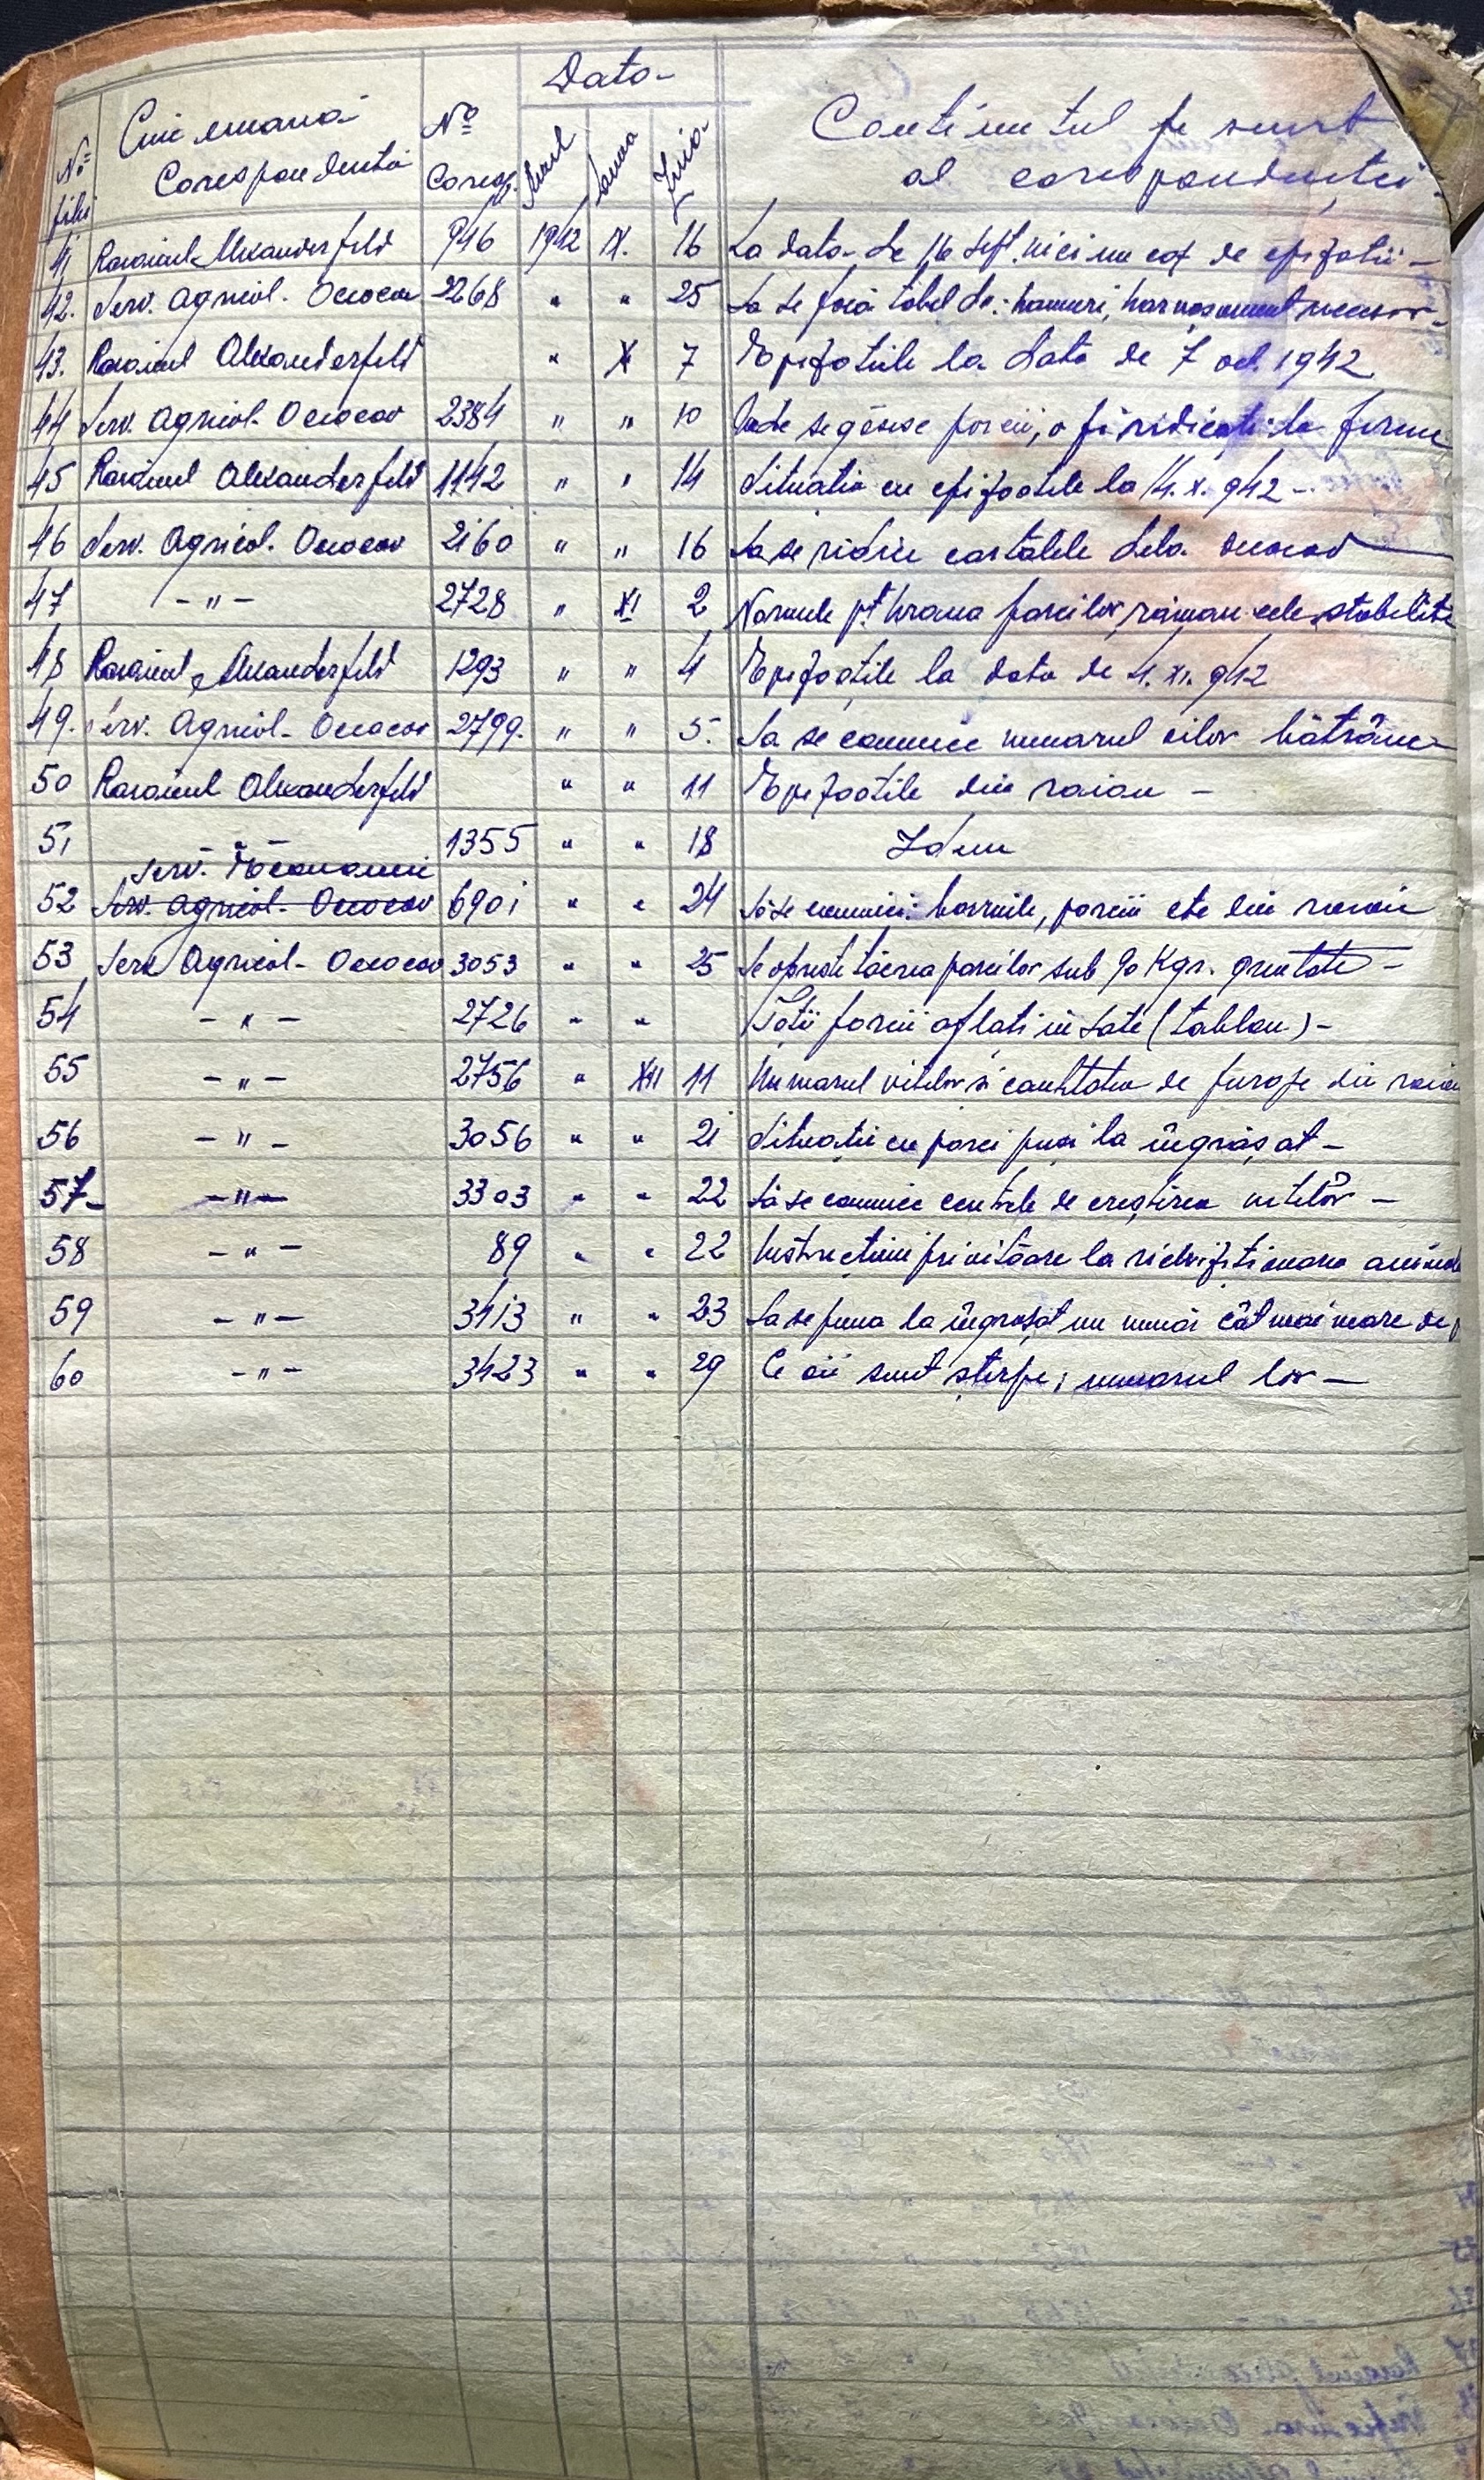 Nº filei | Cine emană Corespondența | Nº Coresp. | Data- Anul | Luna | Ziua | Continutul pe scurt al corespondenței
41 Raionul Alexanderfeld 946 1942 IX. 16 La data de 16 Sept. nici un caz de epizotii -
42. Serv. Agricol. Ocacov 2268 " " 25 Sa se facă tabel de: hamuri,
43. Raionul Alexanderfeld " X 7 Epizotiile la data de 7 oct. 1942
44 Serv. Agricol. Ocacov 2384 " " 10 se găsesc porcii, a fi ridicați de ferme
45 Raionul Alexanderfeld 1142 " " 14 Situatia cu epizootile la 14. X. 942 -
46 Serv. Agricol. Ocacov 2160 " " 16 Sa se ridice dela Ocacov
47 - " - 2728 " XI 2 Normele pt. hrana porcilor, rămân cele stabilite
48 Raionul Alexanderfeld 1293 " " 4 Epizootile la data de 4. XI. 942
49. Serv. Agricol- Ocacov 2799. " " 5. Sa se comunice numarul oilor bătrâne
50 Raionul Alexanderfeld " " 11 Epizootile din raion -
51 - " - 1355 " " 18 Idem
Serv. Economic
52 Serv. Agricol- Ocacov 6901 " " 24 Să se comunice: porcii etc din raion
53 Serv. Agricol- Ocacov 3053 " " 25 Se oprește tăerea porcilor sub 90 Kgr. greutate -
54 - " - 2726 " " Toți porcii aflati în sate (tablou) -
55 - " - 2756 " XII 11 Numarul vitelor si cantitatea de furaje din raion
56 - " - 3056 " " 21 Situații cu porci puși la îngrășat -
57- - " - 3303 " " 22 Să se comunice centrele de creșterea vitelor -
58 - " - 89 " " 22 Instrucțiuni privitoare la rechizitionarea
59 - " - 3413 " " 23 Sa se puna la îngrașat un număr cât mai mare de
60 - " - 3423 " " 29 Ce oi sunt sterpe; numarul lor -